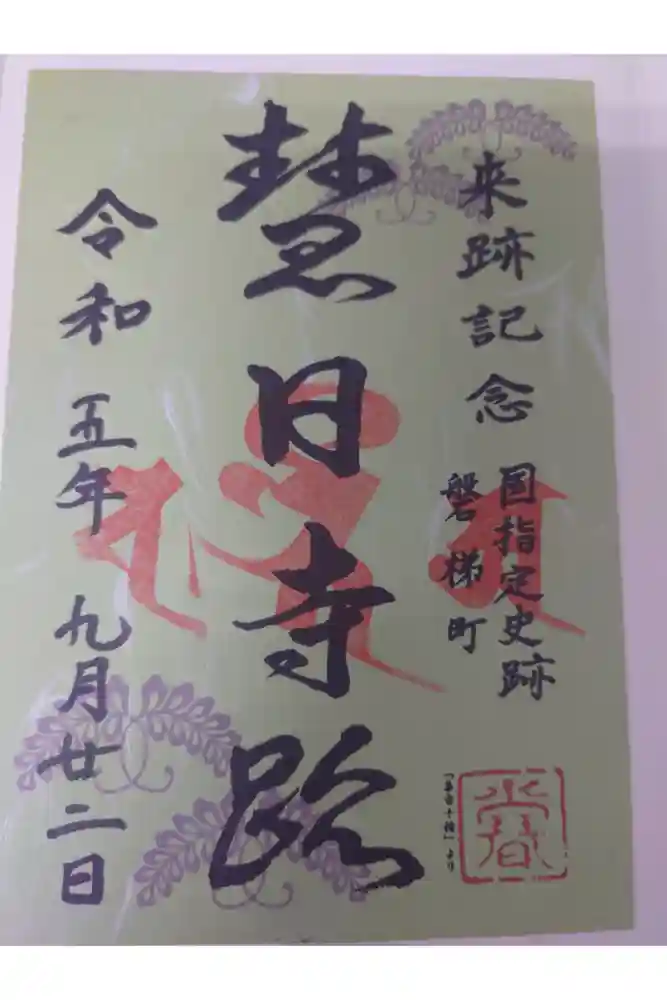 来跡記念
国指定史跡
磐梯町
慧日寺跡
令和五年九月廿二日